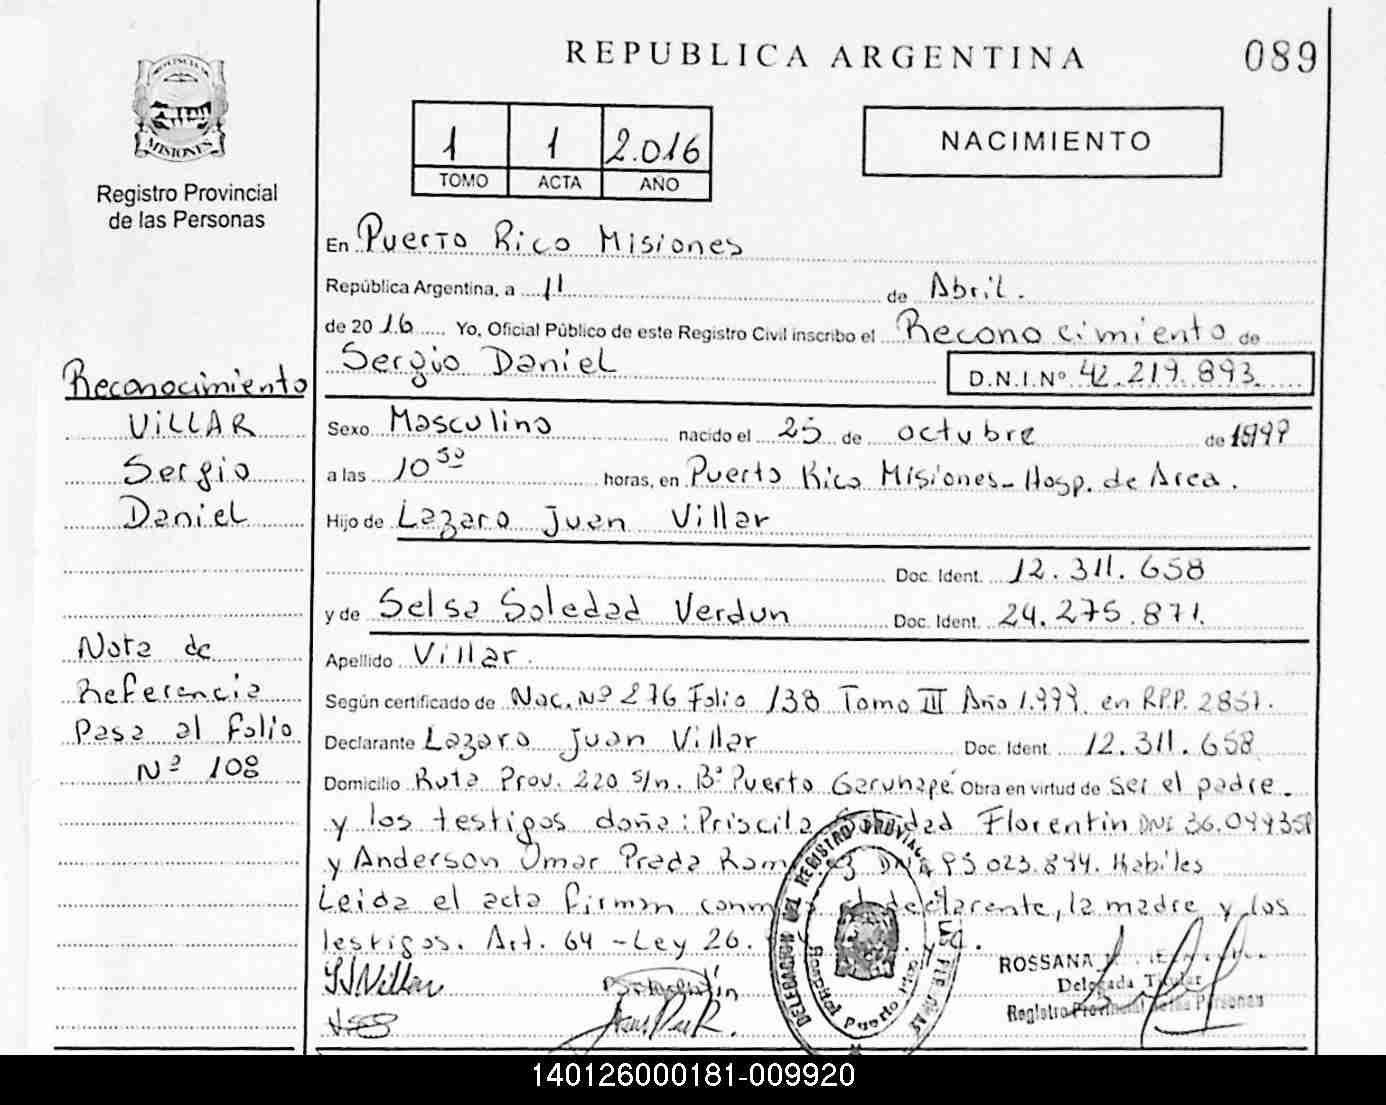 REPUBLICA ARGENTINA
089
PROVINCIA
MISIONES
Registro Provincial
de las Personas
1 1 2.016
TOMO ACTA AÑO
NACIMIENTO
En Puerto Rico Misiones
República Argentina, a 11 de Abril.
de 20 16 Yo, Oficial Público de este Registro Civil inscribo el Reconocimiento de
Sergio Daniel D.N.I.Nº 42.219.893
Sexo Masculino nacido el 25 de octubre de
a las 10 50 horas, en Puerto Rico Misiones - Hosp. de Area.
Hijo de Lazaro Juan Villar
Doc. Ident. 12.311.658
y de Selsa Soledad Verdun Doc. Ident. 24.275.871.
Apellido Villar.
Según certificado de Nac. Nº 276 Folio 138 Tomo III Año 1.999. en R.P.P. 2851.
Declarante Lazaro Juan Villar Doc. Ident. 12.311.658
Domicilio Ruta Prov. 220 s/n. Bº Puerto Garuhapé Obra en virtud de ser el padre.
y los testigos doña: Priscila Florentin DNI
y Anderson Omar Prada DNI 95.023.894. Habiles
Leida el acta firman declarante, la madre y los
testigos. Art. 64 - Ley 26.
Reconocimiento
VILLAR
Sergio
Daniel
Nota de
Referencia
Pasa al folio
Nº 108
DELEGACION DEL REGISTRO PROVINCIAL
LAS PERSONAS
Puerto
ROSSANA
Delegada Titular
Registro Provincial de las Personas
140126000181-009920